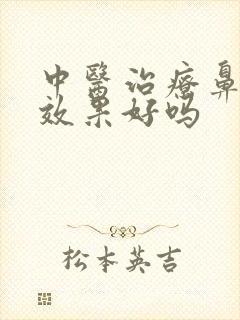 中醫治療鼻
效果好吗
松本英吉